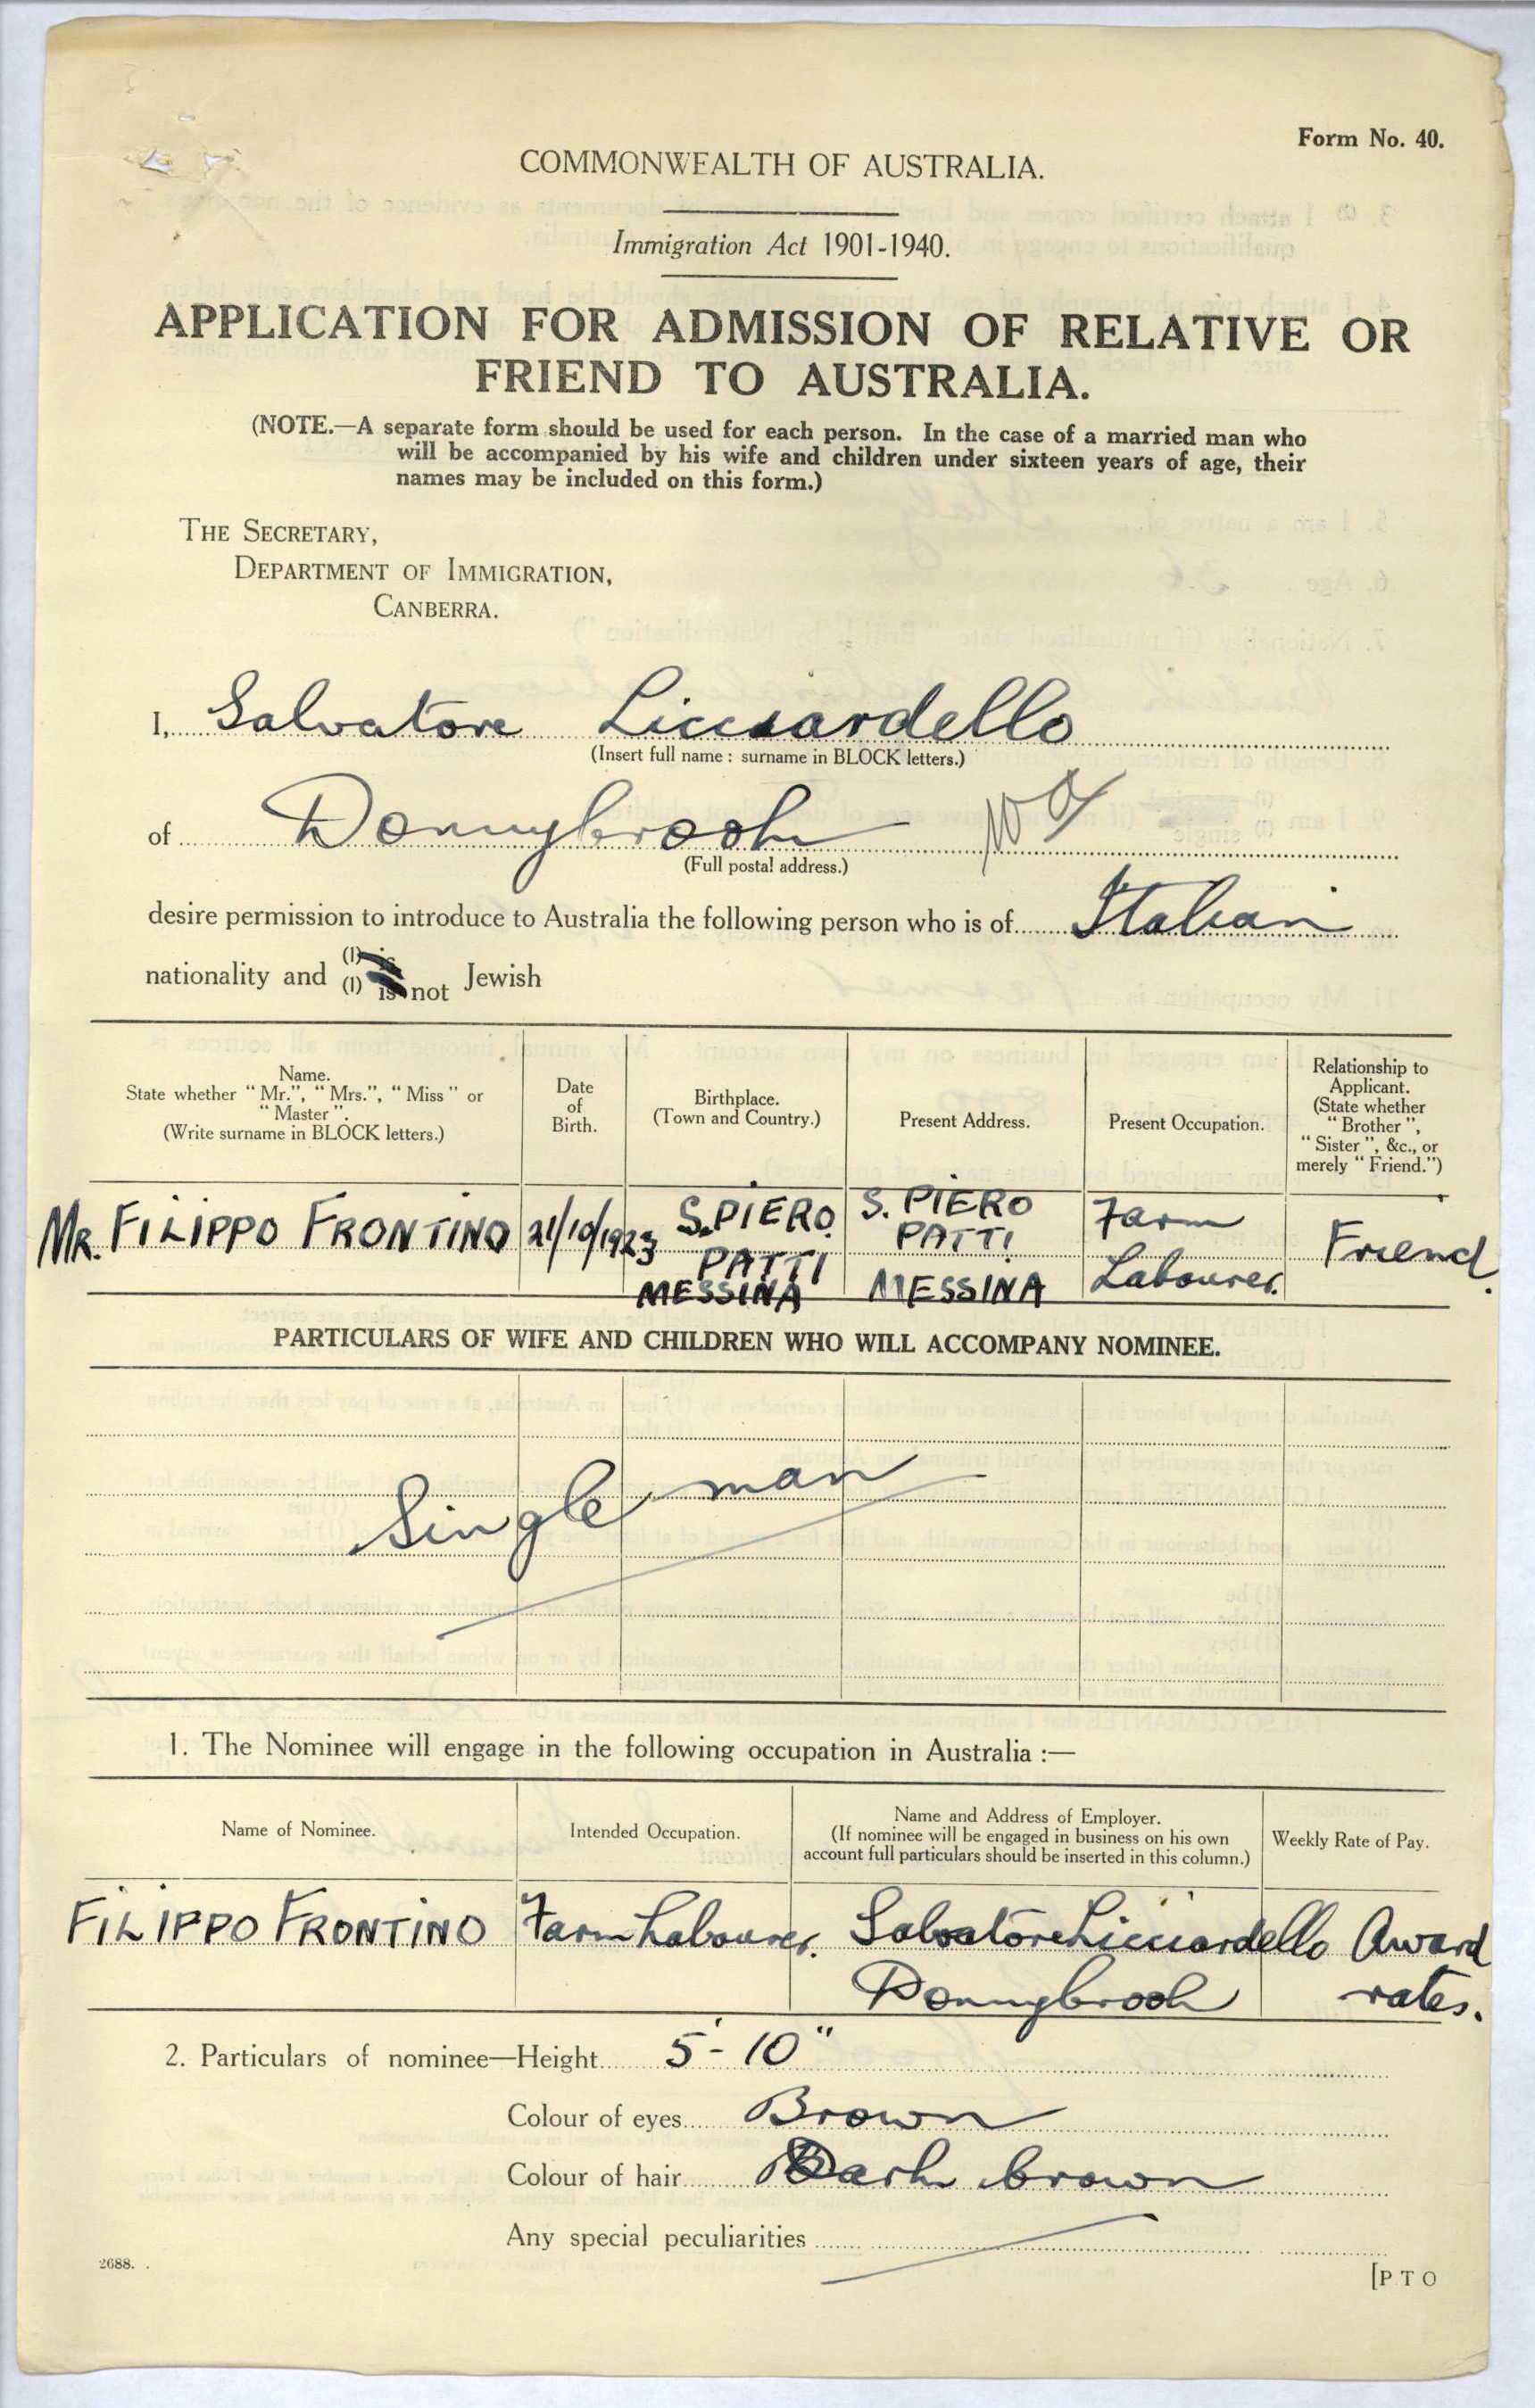 Form No. 40.
COMMONWEALTH OF AUSTRALIA.
Immigration Act 1901-1940.
APPLICATION FOR ADMISSION OF RELATIVE OR
FRIEND TO AUSTRALIA.
(NOTE.—A separate form should be used for each person. In the case of a married man who
will be accompanied by his wife and children under sixteen years of age, their
names may be included on this form.)
THE SECRETARY,
DEPARTMENT OF IMMIGRATION,
CANBERRA.
I, Salvatore Licciardello
(Insert full name : surname in BLOCK letters.)
of Donnybrook
(Full postal address.)
desire permission to introduce to Australia the following person who is of Italian
nationality and (1) is
(1) is not Jewish
Name.
State whether "Mr.", "Mrs.", "Miss" or
"Master".
(Write surname in BLOCK letters.)
Date
of
Birth.
Birthplace.
(Town and Country.)
Present Address.
Present Occupation.
Relationship to
Applicant.
(State whether
"Brother",
"Sister", &c., or
merely "Friend.")
MR. FILIPPO FRONTINO
21/10/1923
S. PIERO
PATTI
MESSINA
S. PIERO
PATTI
MESSINA
Farm
Labourer.
Friend.
PARTICULARS OF WIFE AND CHILDREN WHO WILL ACCOMPANY NOMINEE.
Single man
1. The Nominee will engage in the following occupation in Australia :—
Name of Nominee.
Intended Occupation.
Name and Address of Employer.
(If nominee will be engaged in business on his own
account full particulars should be inserted in this column.)
Weekly Rate of Pay.
FILIPPO FRONTINO
Farm Labourer.
Salvatore Licciardello
Donnybrook
Award
rates.
2. Particulars of nominee—Height 5'-10"
Colour of eyes Brown
Colour of hair Dark brown
Any special peculiarities
2688.
[P T O